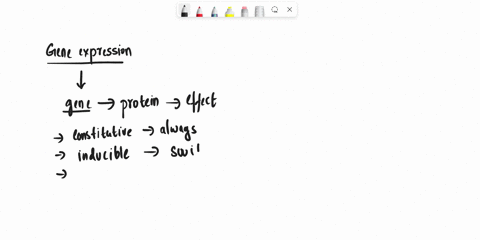 Gene expression
↓
gene → protein → effect
→ constitutive → always
→ inducible →
→